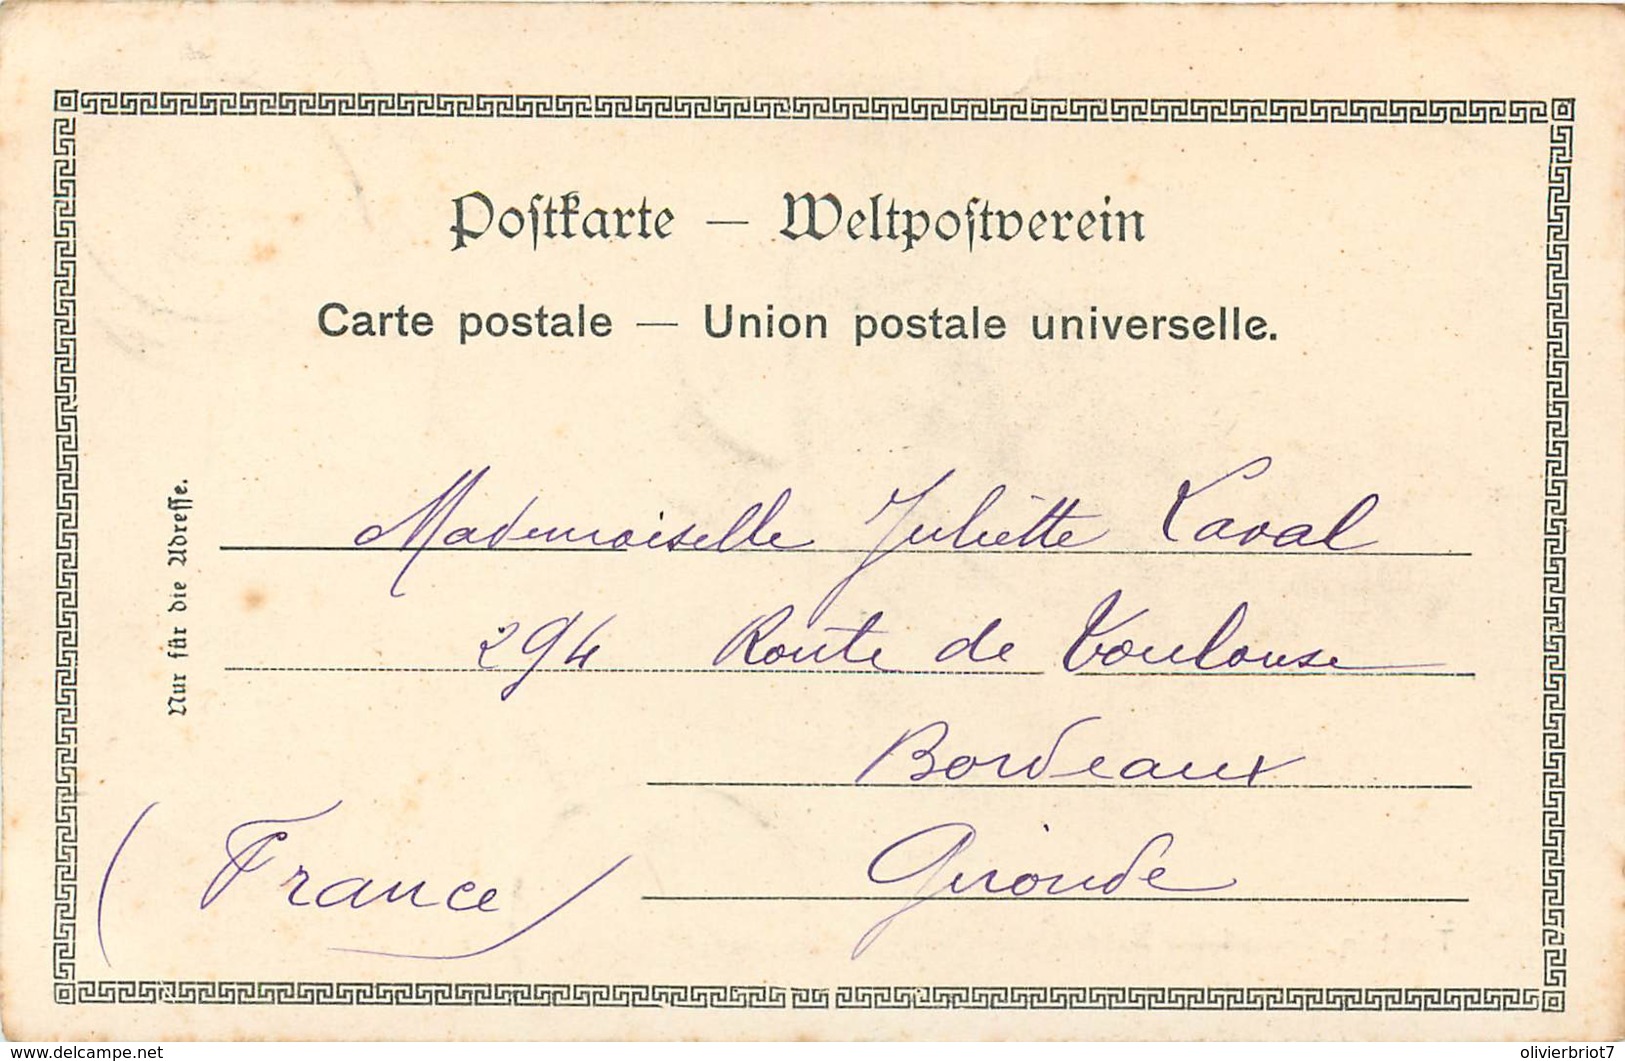 Postkarte — Weltpostverein
Carte postale — Union postale universelle.
Nur für die Adresse.
Mademoiselle Juliette Laval
294 Route de Toulouse
Bordeaux
Gironde
(France)
www.delcampe.net
olivierbriot7